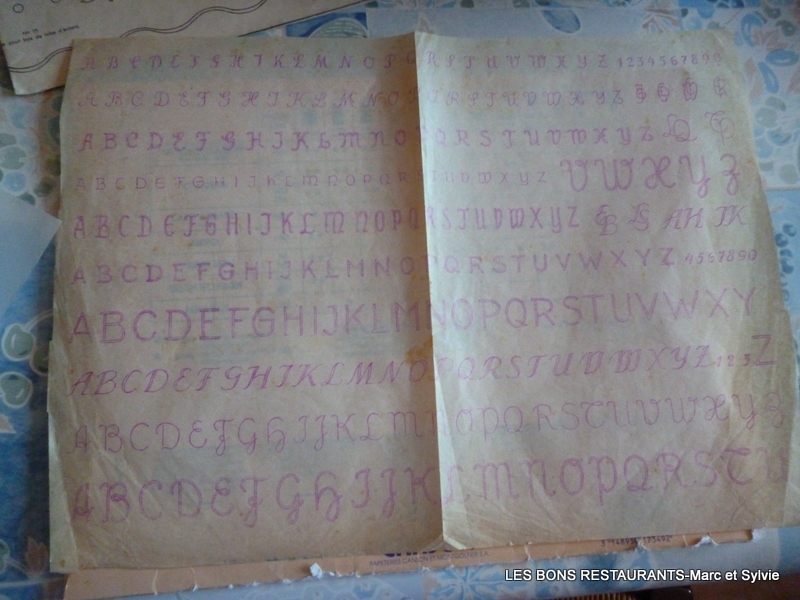 A B C D E F G H I K L M N O P Q R S T U V W X Y Z 1 2 3 4 5 6 7 8 9 0
A B C D E F G H I J K L M N O P R S T U V W X Y Z
A B C D E F G H I J K L M N O P Q R S T U V W X Y Z
A B C D E F G H I J K L M N O P Q R S T U V W X Y Z V W X Y Z
A B C D E F G H I J K L M N O P Q R S T U V W X Y Z
A B C D E F G H I J K L M N O P Q R S T U V W X Y Z 4 5 6 7 8 9 0
A B C D E F G H I J K L M N O P Q R S T U V W X Y
A B C D E F G H I J K L M N O P Q R S T U V W X Y Z 1 2 3 Z
A B C D E F G H I J K L M N O P Q R S T U V W X Y Z
A B C D E F G H I J K L M N O P Q R S T U
PAPETERIES CANSON ET MONTGOLFIER S.A
LES BONS RESTAURANTS-Marc et Sylvie